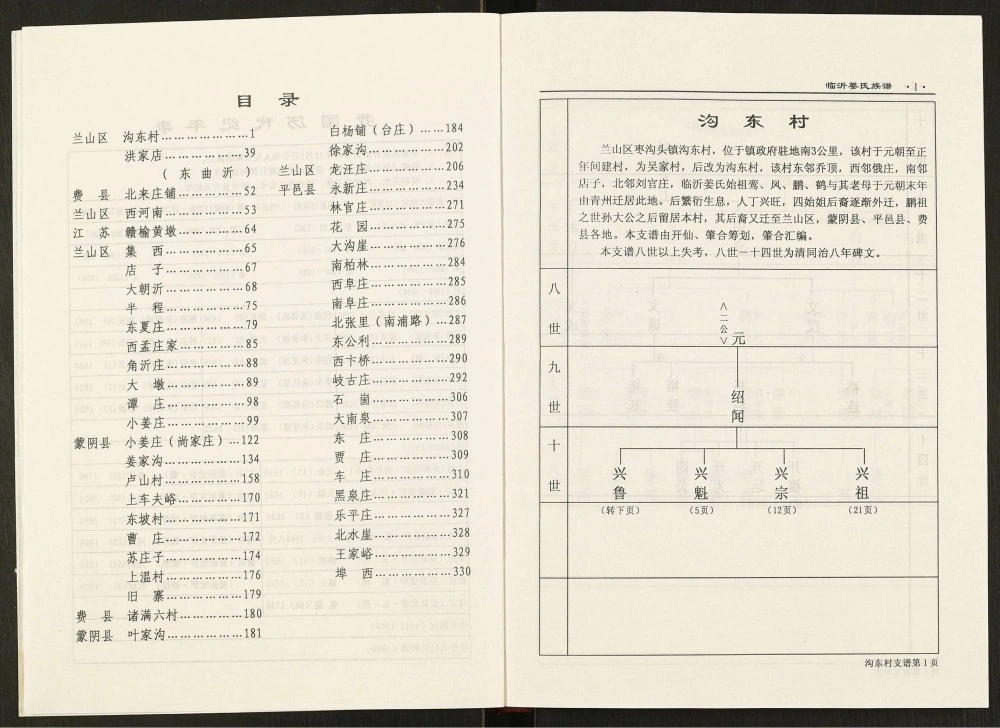 目 录
兰山区 沟东村………………1
洪家店……………39
（东曲沂）
费 县 北来庄铺……………52
兰山区 西河南……………53
江 苏 赣榆黄墩……………64
兰山区 集 西……………65
店 子……………67
大朝沂……………68
半 程……………75
东夏庄……………79
西孟庄家……………85
角沂庄……………88
大 墩……………89
谭 庄……………98
小姜庄……………99
蒙阴县 小姜庄（尚家庄）…122
姜家沟……………134
卢山村……………158
上车夫峪…………170
东坡村……………171
曹 庄……………172
苏庄子……………174
上温村……………176
旧 寨……………179
费 县 诸满六村…………180
蒙阴县 叶家沟……………181
白杨铺（台庄）……184
徐家沟……………202
兰山区 龙汪庄……………206
平邑县 永新庄……………234
林官庄……………271
花 园……………275
大沟崖……………276
南柏林……………284
西阜庄……………285
南阜庄……………286
北张里（南浦路）…287
东公利……………289
西卞桥……………290
岐古庄……………292
石 崮……………306
大南泉……………307
东 庄……………308
贾 庄……………309
车 庄……………310
黑泉庄……………321
乐平庄……………327
北水崖……………328
王家峪……………329
埠 西……………330
临沂姜氏族谱 ·1·
沟 东 村
兰山区枣沟头镇沟东村，位于镇政府驻地南3公里，该村于元朝至正
年间建村，为吴家村，后改为沟东村，该村东邻乔顶，西邻俄庄，南邻
店子，北邻刘官庄，临沂姜氏始祖鸾、凤、鹏、鹤与其老母于元朝末年
由青州迁居此地。后繁衍生息，人丁兴旺，四始姐后裔逐渐外迁，鹏祖
之世孙大公之后留居本村，其后裔又迁至兰山区，蒙阴县、平邑县、费
县各地。本支谱由开仙、肇合筹划，肇合汇编。
本支谱八世以上失考，八世一十四世为清同治八年碑文。
八世
〈二公〉元
九世
绍闻
十世
兴鲁 兴魁 兴宗 兴祖
（转下页） （5页） （12页） （21页）
沟东村支谱第1页